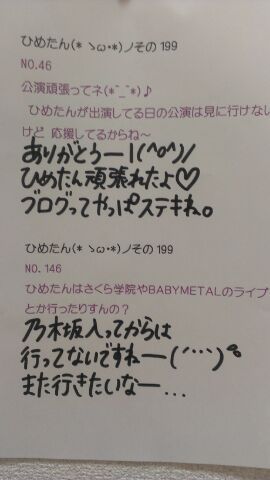 ひめたん(* ゝω･*)ノその199
NO.46
公演頑張ってネ(*^_^*)♪
ひめたんが出演してる日の公演は見に行けない
けど 応援してるからね～
ありがとうー!(^o^)/
ひめたん頑張れたよ♡
ブログってやっぱステキね。
ひめたん(* ゝω･*)ノその199
NO.146
ひめたんはさくら学院やBABYMETALのライブ
とか行ったりすんの？
乃木坂入ってからは
行ってないですねー(´･･･`)
また行きたいなー...